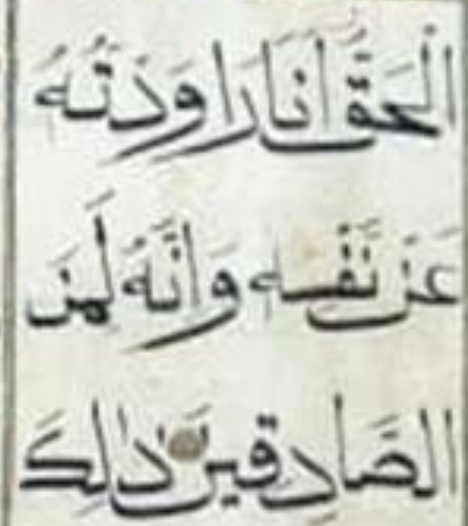 الْحَقُّ أَنَا رَاوَدتُّهُ
عَن نَّفْسِهِ وَإِنَّهُ لَمِنَ
الصَّادِقِينَ ذَٰلِكَ